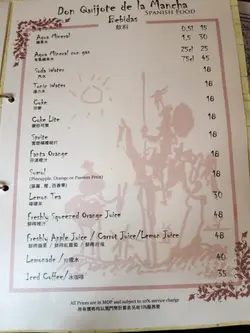 Don Quijote de la Mancha
SPANISH FOOD
Bebidas
飲料
Agua Mineral 0.5l 15
礦泉水 1.5 30
Agua Mineral con gas 25cl 25
有氣礦泉水 75cl 45
Soda Water 18
Tonic Water 18
Coke 18
可樂
Coke Lite 18
健怡可樂
Sprite 18
Fanta Orange 18
芬達橙汁
Sumol 18
(Pineapple, Orange or Passion Fruit)
(菠蘿, 橙, 百香果)
Lemon Tea 30
檸檬茶
Freshly Squeezed Orange Juice 48
鮮榨橙汁
Freshly Apple Juice / Carrot Juice/Lemon Juice 48
鮮榨蘋果 / 鮮榨紅蘿蔔 / 鮮榨檸檬
Lemonade /
Iced Coffee/冰咖啡 35
All Prices are in MOP and subject to 10% service charge
所有價格均以澳門幣計算及另收10%服務費